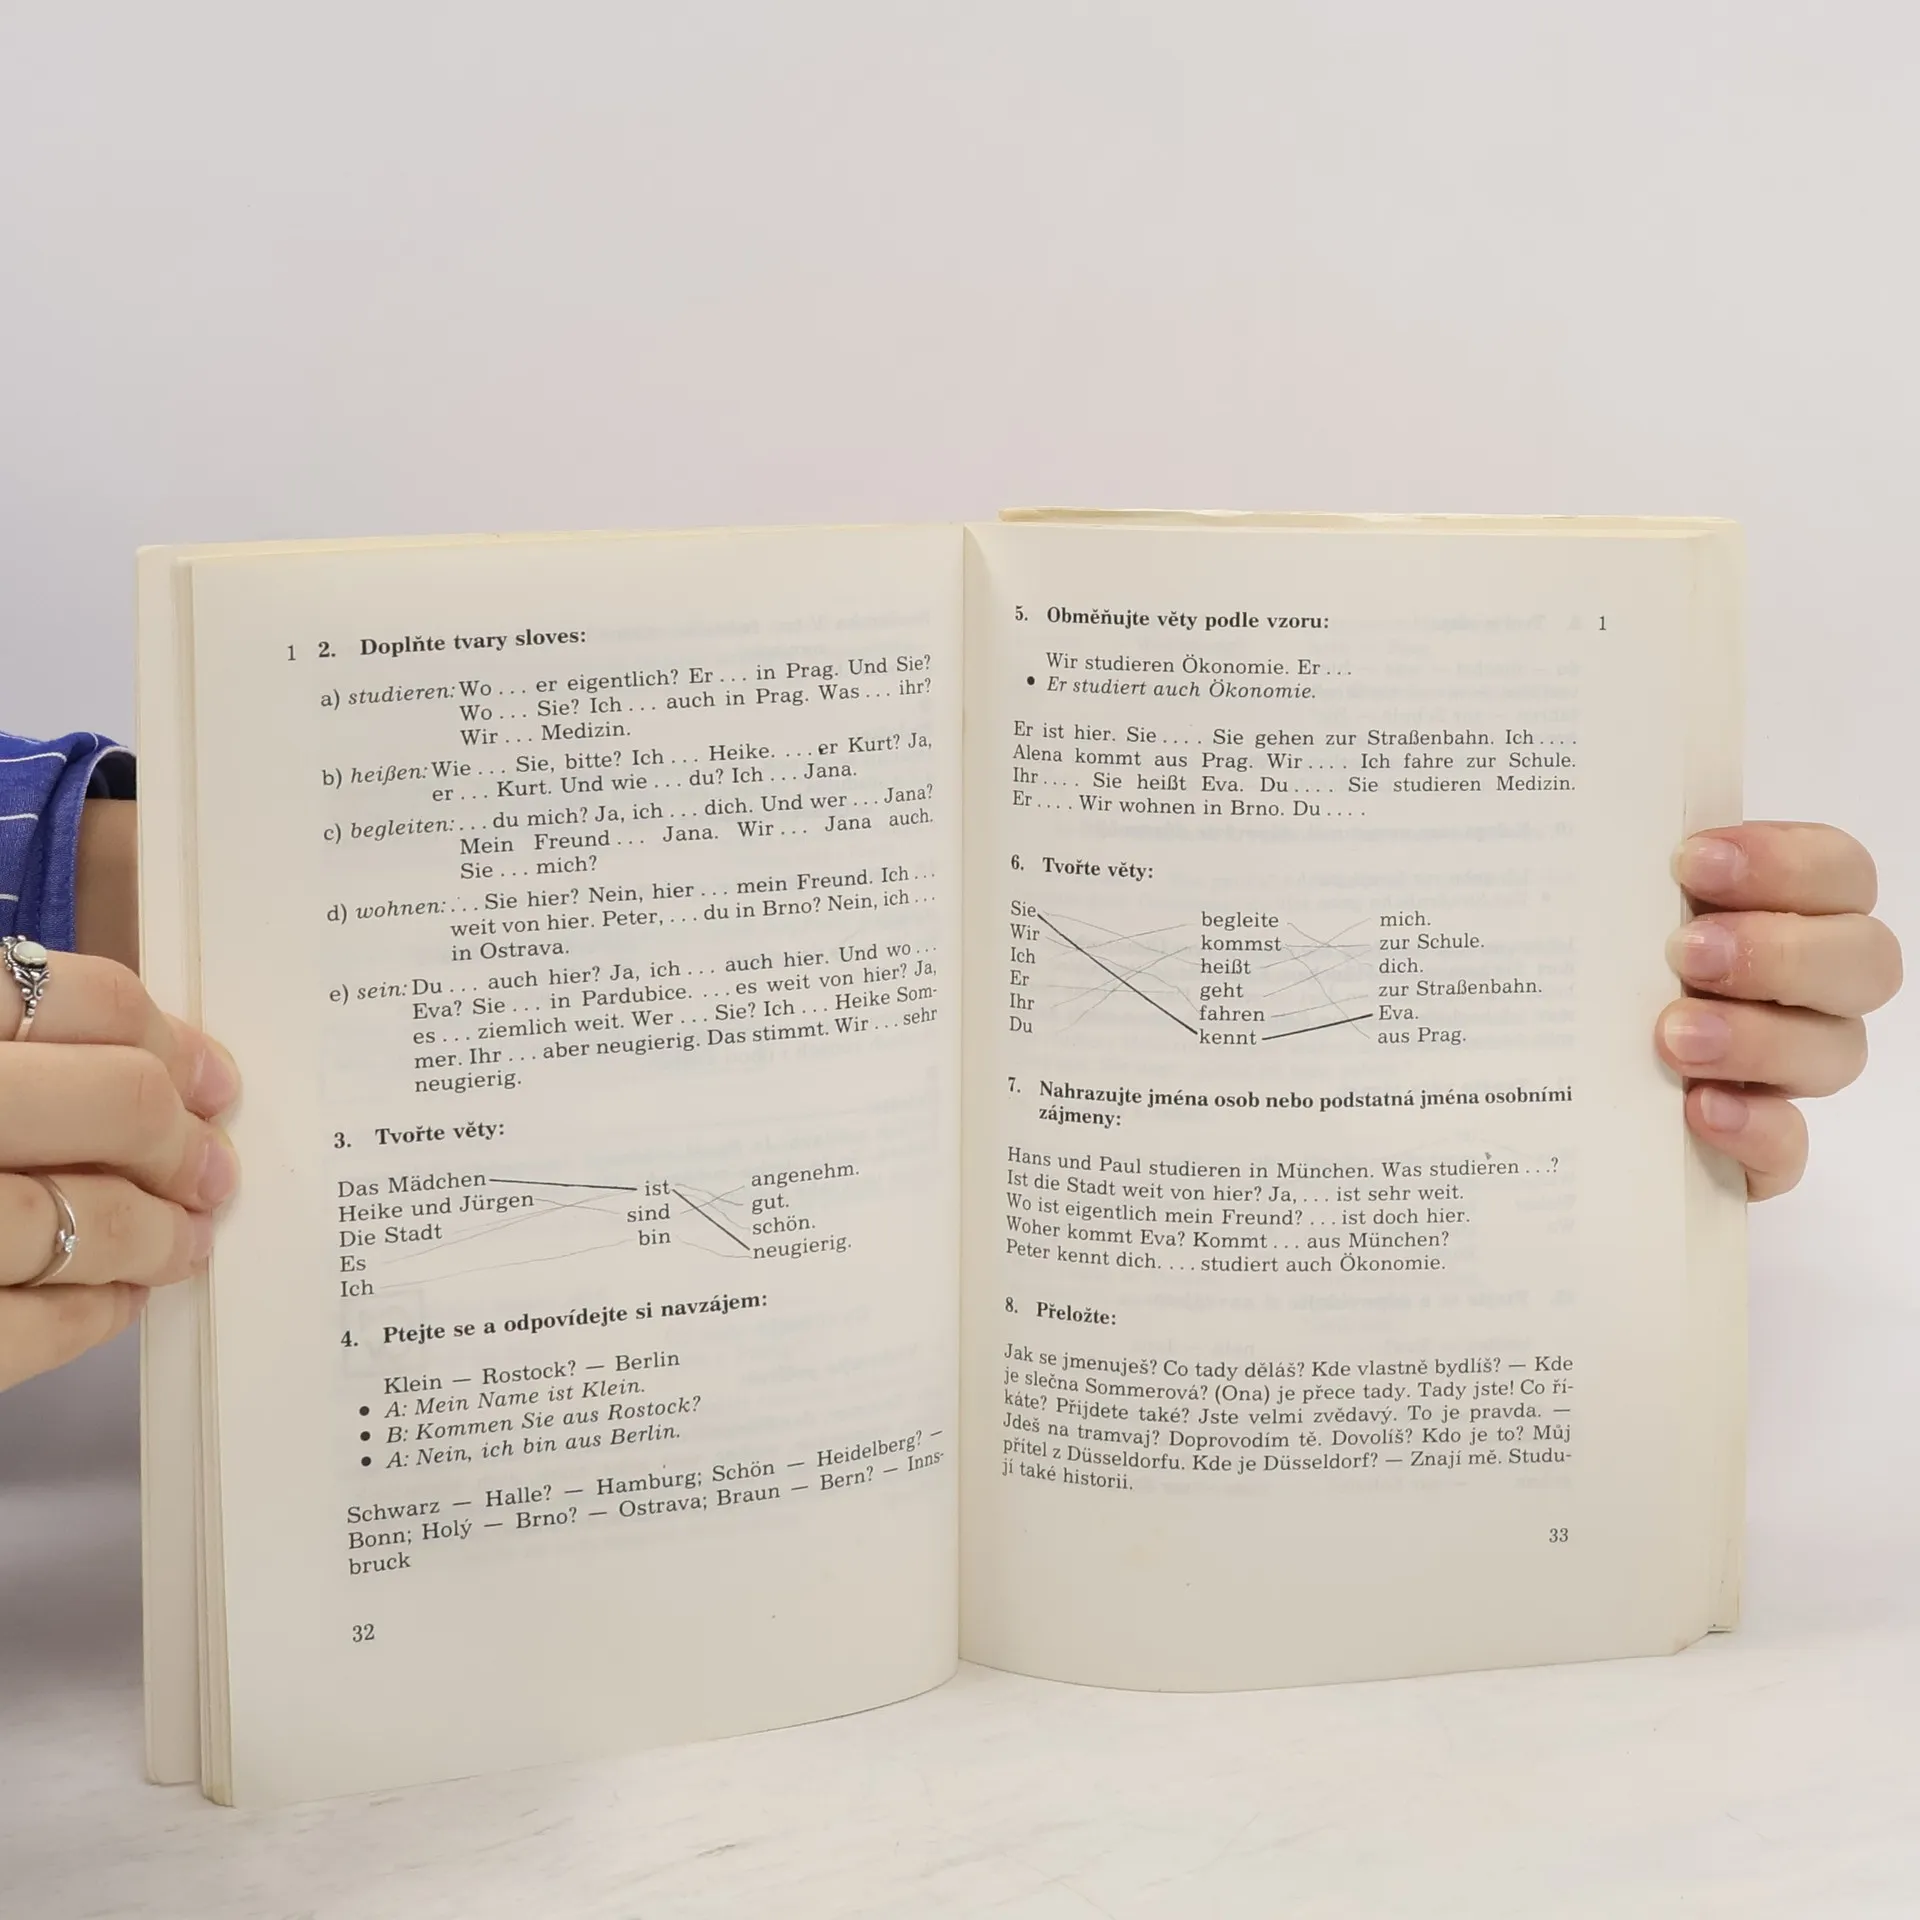 1 2. Doplňte tvary sloves:
a) studieren: Wo ... er eigentlich? Er ... in Prag. Und Sie?
Wo ... Sie? Ich ... auch in Prag. Was ... ihr?
Wir ... Medizin.
b) heißen: Wie ... Sie, bitte? Ich ... Heike. ... er Kurt? Ja,
er ... Kurt. Und wie ... du? Ich ... Jana.
c) begleiten: ... du mich? Ja, ich ... dich. Und wer ... Jana?
Mein Freund ... Jana. Wir ... Jana auch.
Sie ... mich?
d) wohnen: ... Sie hier? Nein, hier ... mein Freund. Ich ...
weit von hier. Peter, ... du in Brno? Nein, ich ...
in Ostrava.
e) sein: Du ... auch hier? Ja, ich ... auch hier. Und wo ...
Eva? Sie ... in Pardubice. ... es weit von hier? Ja,
es ... ziemlich weit. Wer ... Sie? Ich ... Heike Som-
mer. Ihr ... aber neugierig. Das stimmt. Wir ... sehr
neugierig.
3. Tvořte věty:
Das Mädchen ist angenehm.
Heike und Jürgen sind gut.
Die Stadt bin schön.
Es neugierig.
Ich
4. Ptejte se a odpovídejte si navzájem:
Klein — Rostock? — Berlin
• A: Mein Name ist Klein.
• B: Kommen Sie aus Rostock?
• A: Nein, ich bin aus Berlin.
Schwarz — Halle? — Hamburg; Schön — Heidelberg? —
Bonn; Holý — Brno? — Ostrava; Braun — Bern? — Inns-
bruck
32
5. Obměňujte věty podle vzoru: 1
Wir studieren Ökonomie. Er ...
• Er studiert auch Ökonomie.
Er ist hier. Sie .... Sie gehen zur Straßenbahn. Ich ....
Alena kommt aus Prag. Wir .... Ich fahre zur Schule.
Ihr .... Sie heißt Eva. Du .... Sie studieren Medizin.
Er .... Wir wohnen in Brno. Du ....
6. Tvořte věty:
Sie begleite mich.
Wir kommst zur Schule.
Ich heißt dich.
Er geht zur Straßenbahn.
Ihr fahren Eva.
Du kennt aus Prag.
7. Nahrazujte jména osob nebo podstatná jména osobními
zájmeny:
Hans und Paul studieren in München. Was studieren ...?
Ist die Stadt weit von hier? Ja, ... ist sehr weit.
Wo ist eigentlich mein Freund? ... ist doch hier.
Woher kommt Eva? Kommt ... aus München?
Peter kennt dich. ... studiert auch Ökonomie.
8. Přeložte:
Jak se jmenuješ? Co tady děláš? Kde vlastně bydlíš? — Kde
je slečna Sommerová? (Ona) je přece tady. Tady jste! Co ří-
káte? Přijdete také? Jste velmi zvědavý. To je pravda. —
Jdeš na tramvaj? Doprovodím tě. Dovolíš? Kdo je to? Můj
přítel z Düsseldorfu. Kde je Düsseldorf? — Znají mě. Studu-
jí také historii.
33